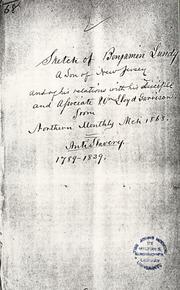 68
Sketch of Benjamin Lundy
A Son of New Jersey
and of his relations with his Disciple
and Associate Wm Lloyd Garrison
from
Northern Monthly Mch 1868.
Anti Slavery
1789-1839.